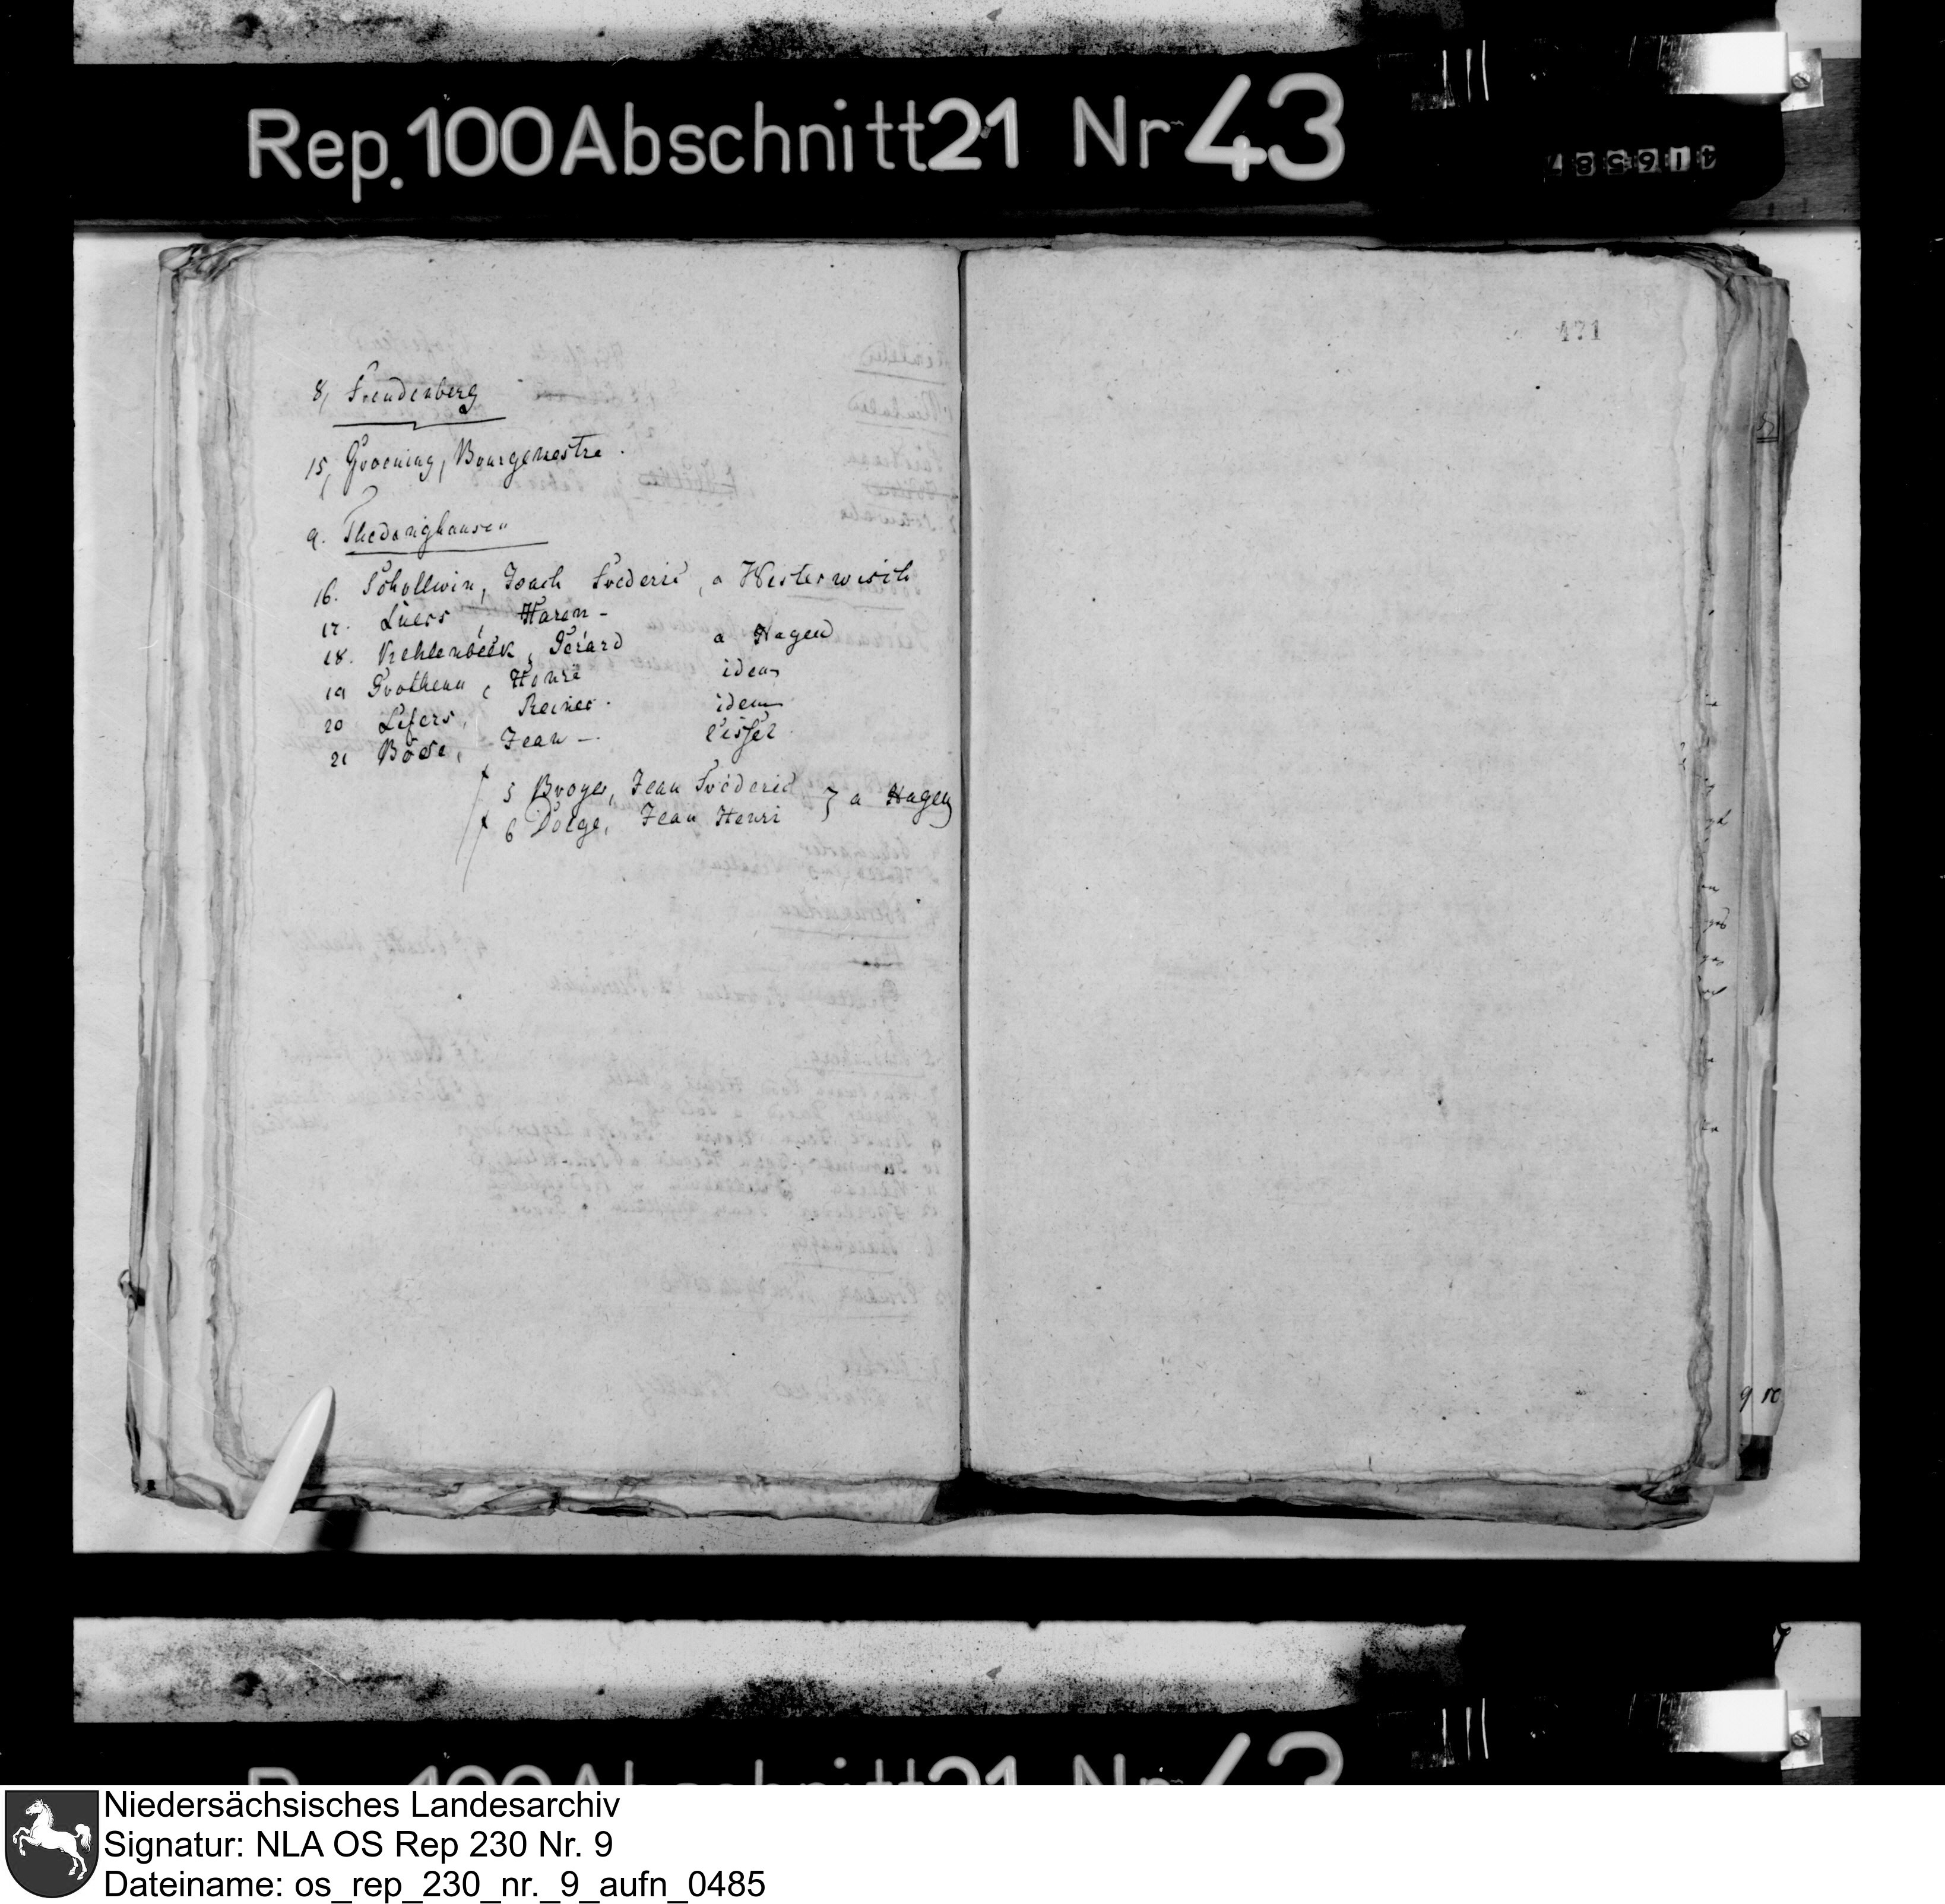 Rep. 100 Abschnitt 21 Nr 43
416587
471
8, Freudenberg
15, Groening, Bourgemestre.
9. Thedinghausen
16. Schollwin, Joach Fréderic, a Westerwisch
17. Lüers, Harm -
18. Kehlenbeck, Gérard a Hagen
19 Grothenn, Henri idem
20 Lefers, Reiner. idem
21 Böse, Jean -
5 Broyer, Jean Fréderic } a Hagen
6 Dölge, Jean Henri
Niedersächsisches Landesarchiv
Signatur: NLA OS Rep 230 Nr. 9
Dateiname: os_rep_230_nr._9_aufn_0485